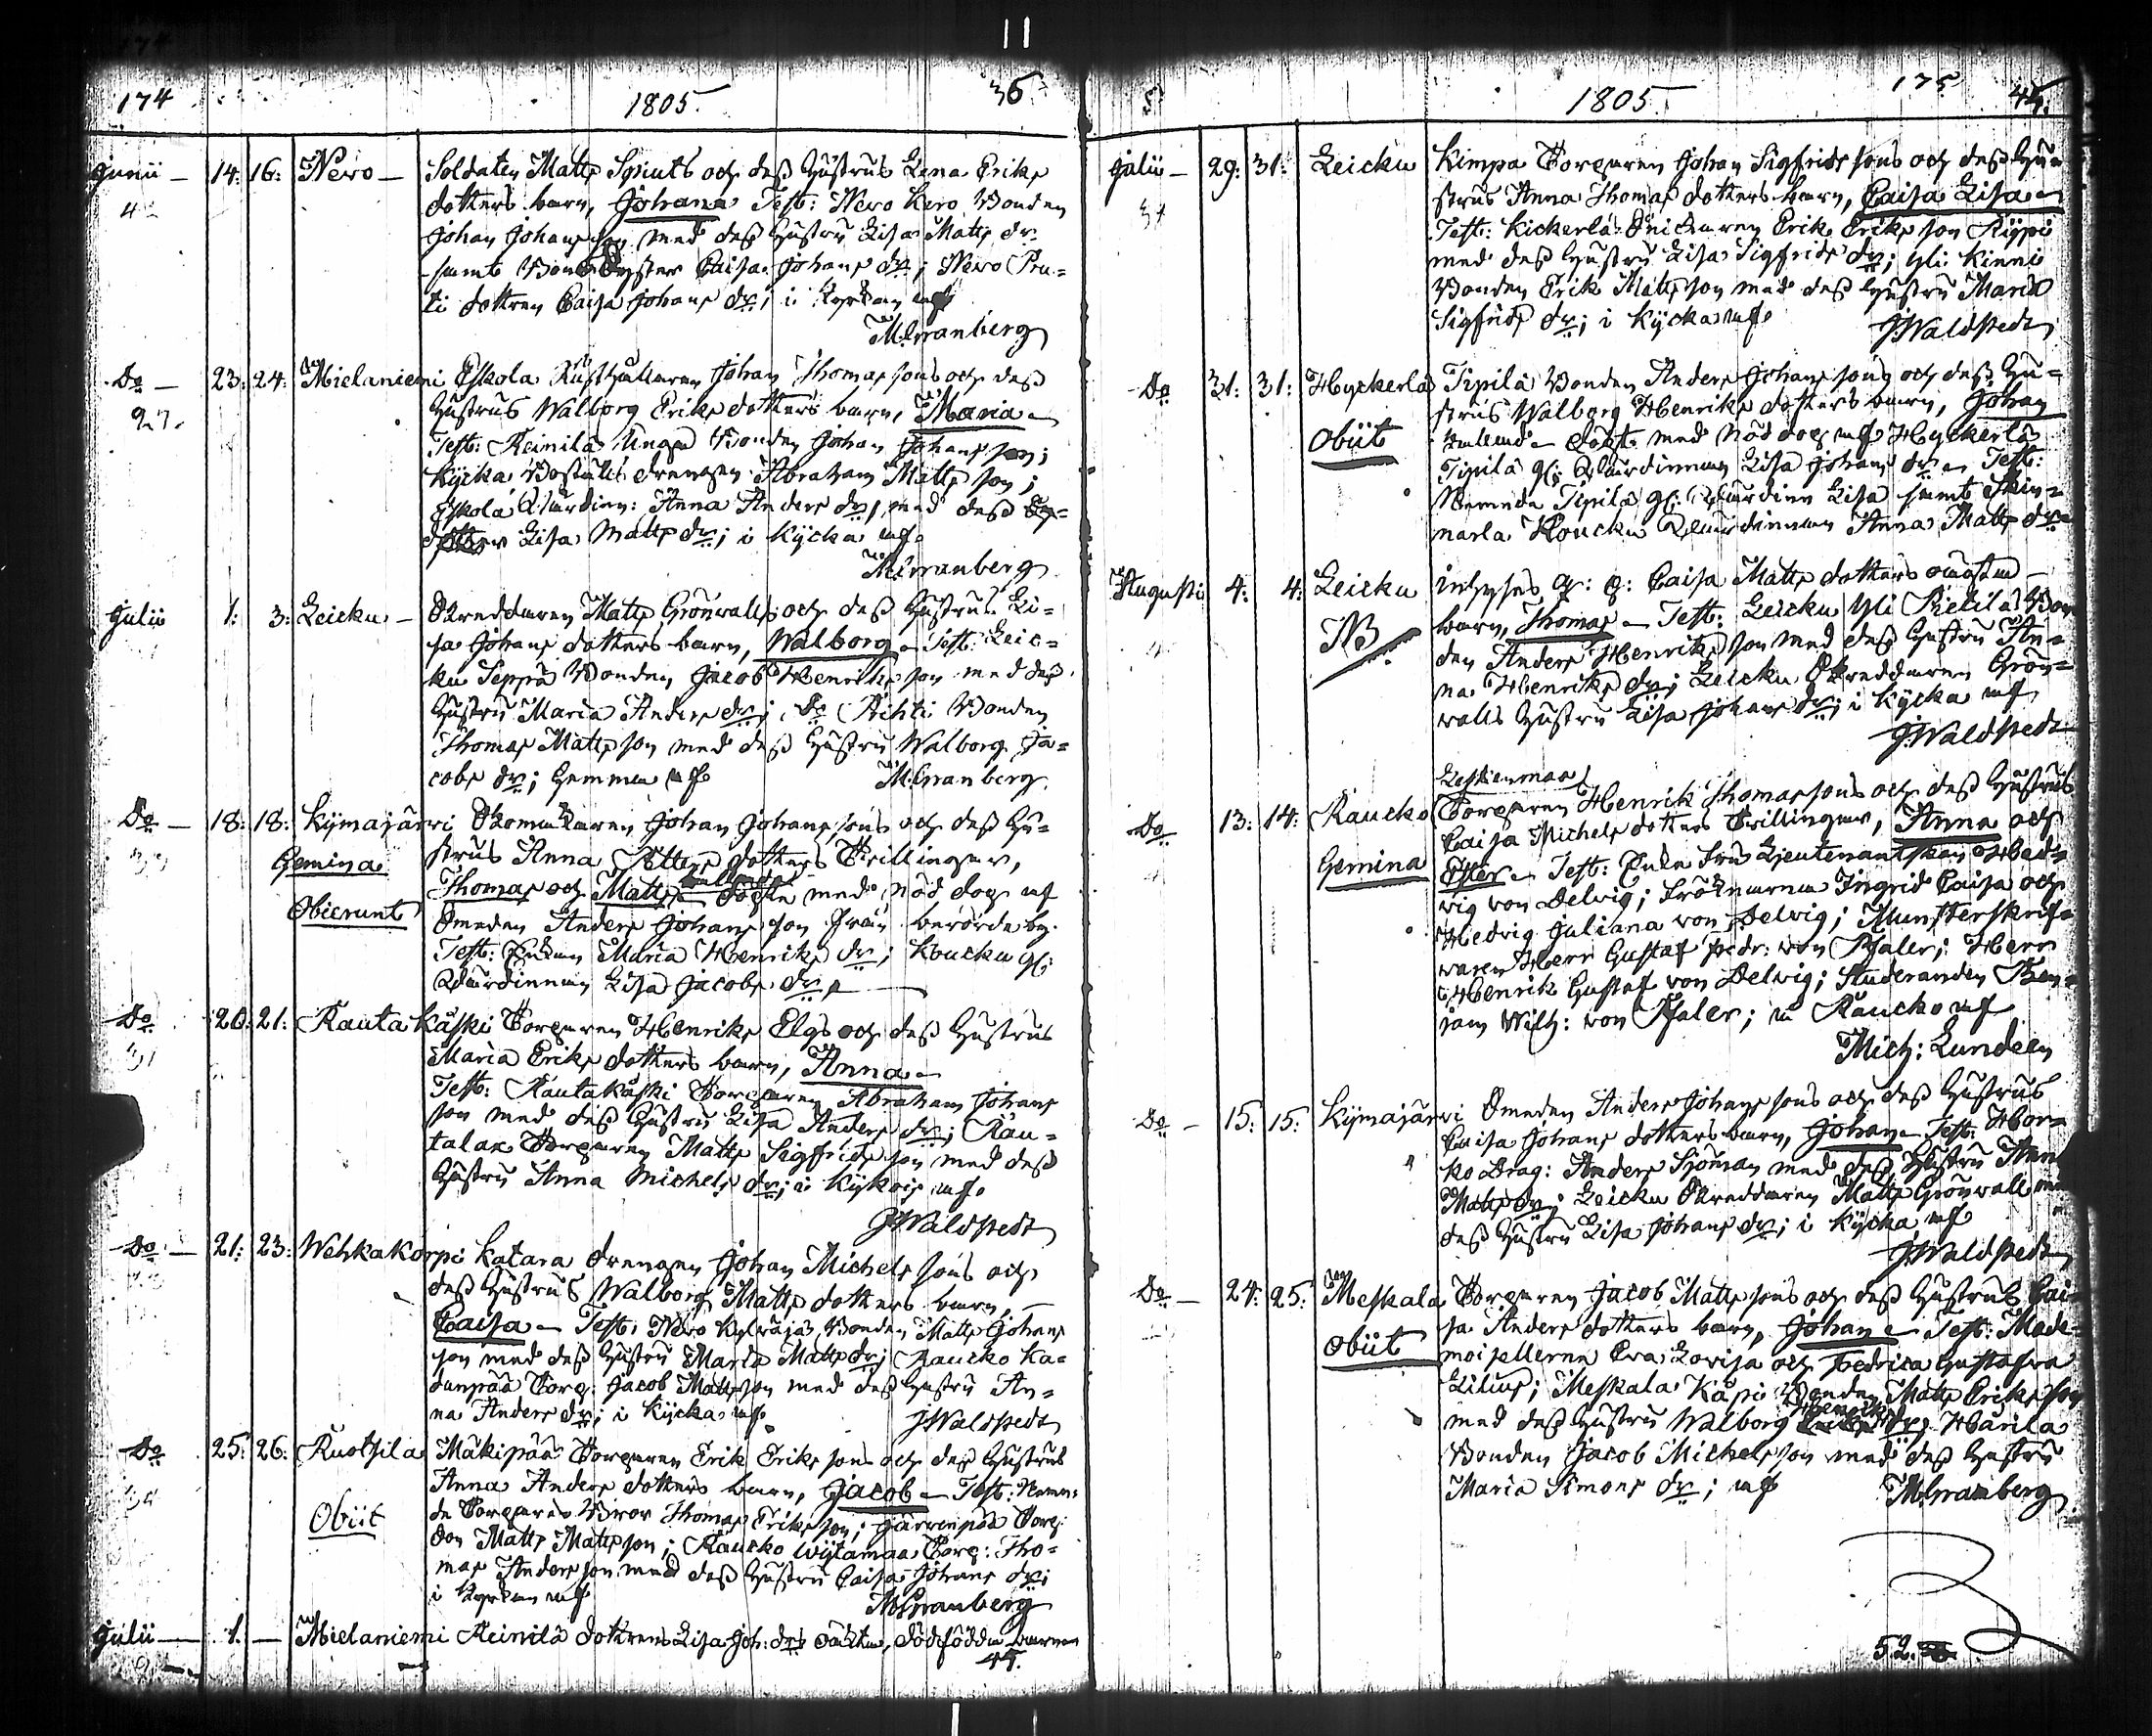 174
1805.
36
Junii — 14: 16: Nero — Soldaten Matts Spiuts och dess Hustrus Lena Eriks
dotters barn, Johan Test: Nero Kero Bonden
Johan Johansson med dess Hustru Lisa Matts dr:
samt Bond Dyster Caisa Johans dr; Nero Pru-
ti dottren Caisa Johans dr; i Kyrkan uf
M. Granberg
Do — 23: 24: Mielaniemi Eskola Rusthållaren Johan Thomas sons och dess
27. Hustrus Walborg Eriks dotters barn, Maria —
Test: Reinilä Unga Bonden Johan Johans son;
Kycka Boställs drengen Abraham Matts son;
Eskola Wärdin: Anna Anders dr, med dess
dotter Lisa Matts dr; i Kycka uf
M. Granberg
Julii 1: 3: Leicku — Skreddaren Matts Grönwalls och dess Hustrus Li-
sa Johans dotters barn, Walborg — Test: Leic-
ku Seppä Bonden Jacob Henriks son med dess
Hustru Maria Anders dr; Do Achti Bonden
Thomas Matts son med dess Hustru Walborg Ja-
cobs dr; hemma uf M. Granberg
Do — 18: 18: Kijmajärwi Skomakaren Johan Johans sons och dess Hu-
Gemina strus Anna Petters dotters Twillingar,
Thomas och Matts kallade Döpte med nöd dop uf
Obierunt Smeden Anders Johans son från berörde by.
Test: Enkan Maria Henriks dr; Koucku gl:
Wärdinnan Lisa Jacobs dr —
Do 20: 21: Rautakåski Torparen Henriks Elgs och dess Hustrus
Maria Eriks dotters barn, Anna —
Test: Rautakåski Torparen Abraham Johans
son med dess Hustru Lisa Anders dr; Rau-
talax Torparen Matts Sigfrids son med dess
Hustru Anna Michels dr; i Kykois uf
J Waldstedt
Do — 21: 23: Wehkakorpi Katara drengen Johan Michels sons och
dess Hustrus Walborg Matts dotters barn, —
Caisa — Test: Nero Kylräjä Bonden Matts Johans
son med dess Hustru Maria Matts dr; Raucko Ka-
danpää Torp: Jacob Matts son med dess Hustru An-
na Anders dr; i Kycka uf J Waldstedt
Do 25: 26: Ruotsila Mäkipää Torparen Erik Eriks sons och dess Hustrus
Anna Anders dotters barn, Jacob — Test:
Obiit de Torparens Bror Thomas Eriks son; Järwenpää Torp:
Son Matts Matts son; Raucko Wijtamaa Torp: Tho-
mas Anders son med dess Hustru Caisa Johans dr;
i Kyrkan uf M Granberg
Julii — 1. — Mielaniemi Reinilä dottrens Lisa Joh: drs oäckta, dödfödda barn
44.
1805
175
44.
Julii — 29: 31: Leicku Kimpa Torparen Johan Sigfrids sons och dess Hu-
strus Anna Thomas dotters barn, Caisa Lisa —
Test: Kickerlä Snickaren Erik Eriks son Rypi
med dess Hustru Lisa Sigfrids dr; Yli Kinni
Bonden Erik Matts son med dess Hustru Maria
Sigfrids dr; i Kycka uf
J Waldstedt
Do 31: 31: Hyckerlä Tipilä Bonden Anders Johans sons och dess Hu-
strus Walborg Henriks dotters barn, Johan
Obiit kallad — Döpt med Nöddop uf Hyckerlä
Tipilä gl: Wärdinnan Lisa Johans dr — Test:
Nemnda Tipilä gl: Wärdinn Lisa samt Skin-
narla Koucku Wärdinnan Anna Matts dr —
Augusti 4: 4: Leicku Inhyses q: p: Caisa Matts dotters oäckta
NB barn, Thomas — Test: Leicku Yli Rietilä Bon
den Anders Henriks son med dess Hustru An-
na Henriks dr; Leicku Skreddaren Grön-
walls Hustru Lisa Johans dr; i Kycka uf
J Waldstedt
Do 13: 14: Raucko Torparen Henrik Thomas sons och dess Hustrus
Caisa Michels dotters Twillingar, Anna och
Gemina Ester — Test: Enke Fru Lieutenantskan Hed-
wig von Delwig; Fröknarna Ingrid Caisa och
Hedvig Juliana von Delwig; Munsterskrif-
waren Herr Gustaf Fredr: von Pfaler; Herr
Henrik Gustaf von Delwig; Studeranden Ben-
jam Wilh: von Pfaler; i Raucko uf
Mich: Lundeen
Do — 15: 15: Kijmajärwi Smeden Anders Johans sons och dess Hustrus
Caisa Johans dotters barn, Johan — Test: Hor-
ko Drag: Anders Sjöman med dess Hustru Anna
Matts dr; Leicku Skreddaren Matts Grönwall med
dess Hustru Lisa Johans dr; i Kycka uf
J Waldstedt
Do — 24: 25: Meskala Torparen Jacob Matts sons och dess Hustrus Cai-
sa Anders dotters barn, Johan — Test: Made-
Obiit moisellerna Eva Lovisa och Fredrica Gustafva
Lilius; Meskala Käpi Bonden Matts Eriks son
med dess Hustru Walborg Henriks dr; Härilä
Bonden Jacob Michels son med dess Hustru
Maria Simons dr; uf M Granberg
52.